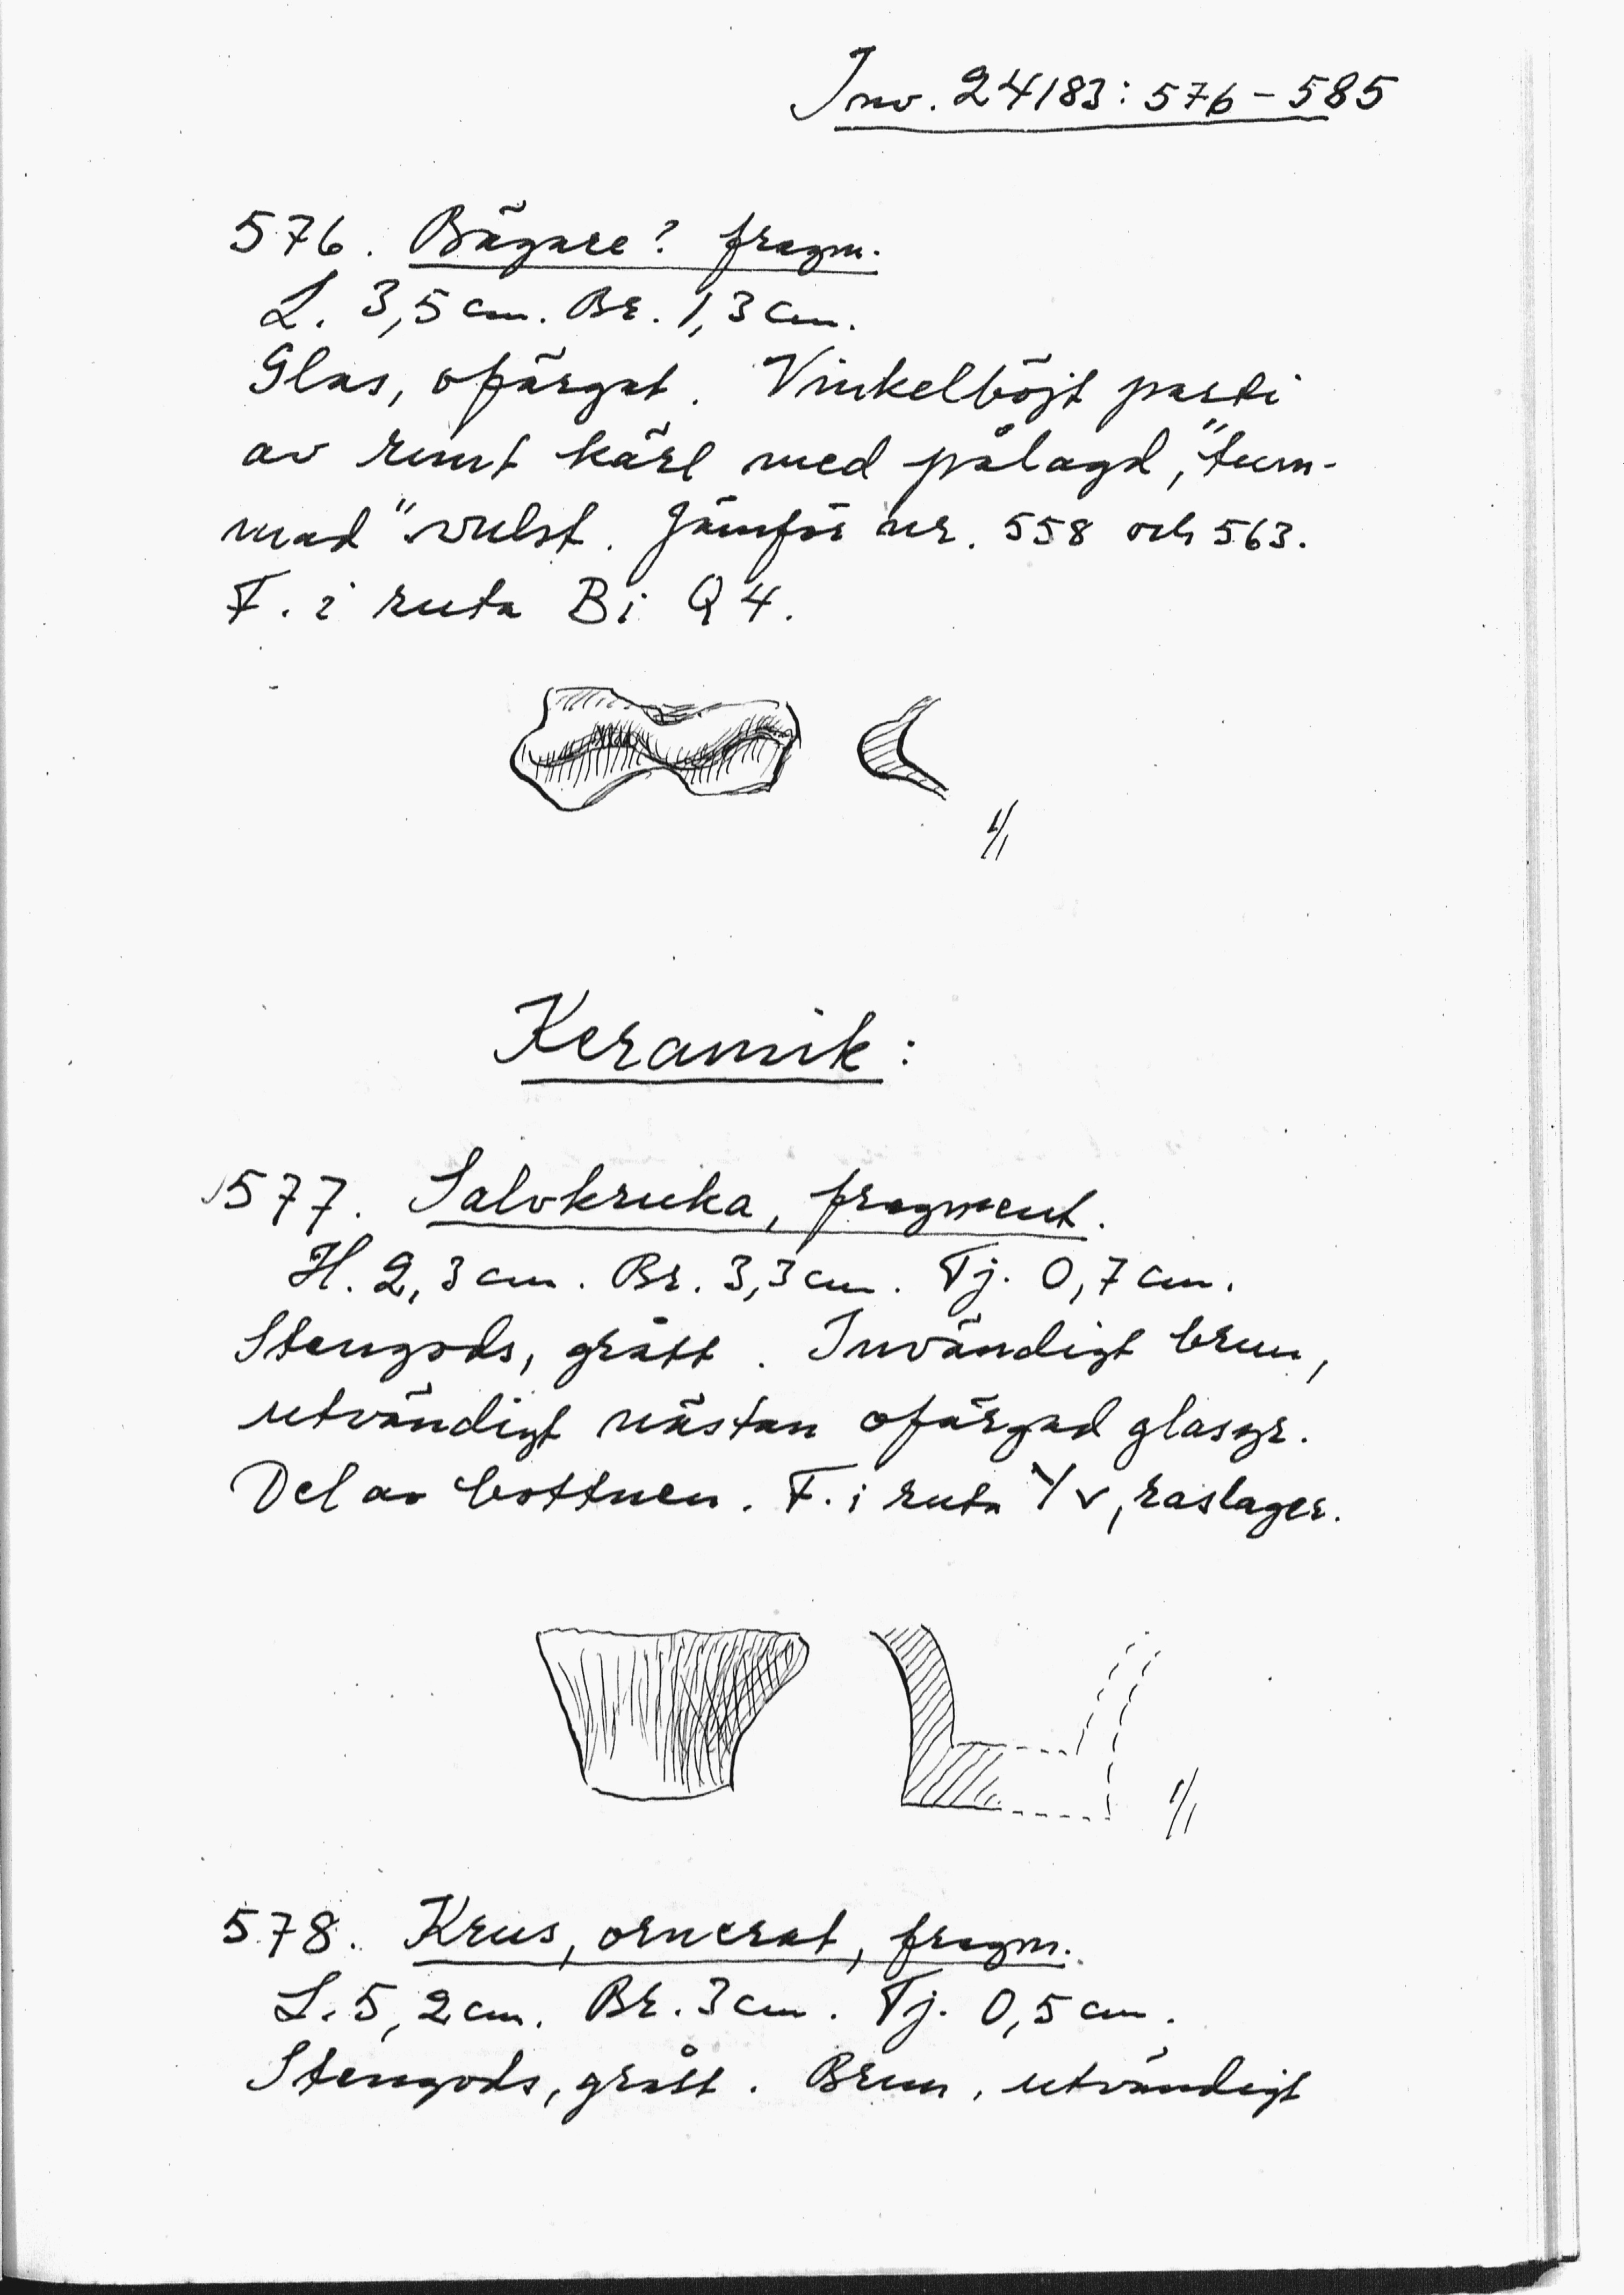 Inv. 24183:576-585
576. Bägare? fragm.
L. 3,5 cm. Br. 1,3 cm.
Glas, ofärgat. Vinkelböjt parti
av runt kärl med pålagd, "tum-
mad" vulst. Jämför nr. 558 och 563.
F. i ruta Bi Q4.
1/1
Keramik:
577. Salvkruka, fragment.
H. 2,3 cm. Br. 3,3 cm. Tj. 0,7 cm.
Stengods, grått. Invändigt brun,
utvändigt nästan ofärgad glasyr.
Del av bottnen. F. i ruta Yv, raslager.
1/1
578. Krus, ornerat, fragm.
L. 5,2 cm. Br. 3 cm. Tj. 0,5 cm.
Stengods, grått. Brun, utvändigt